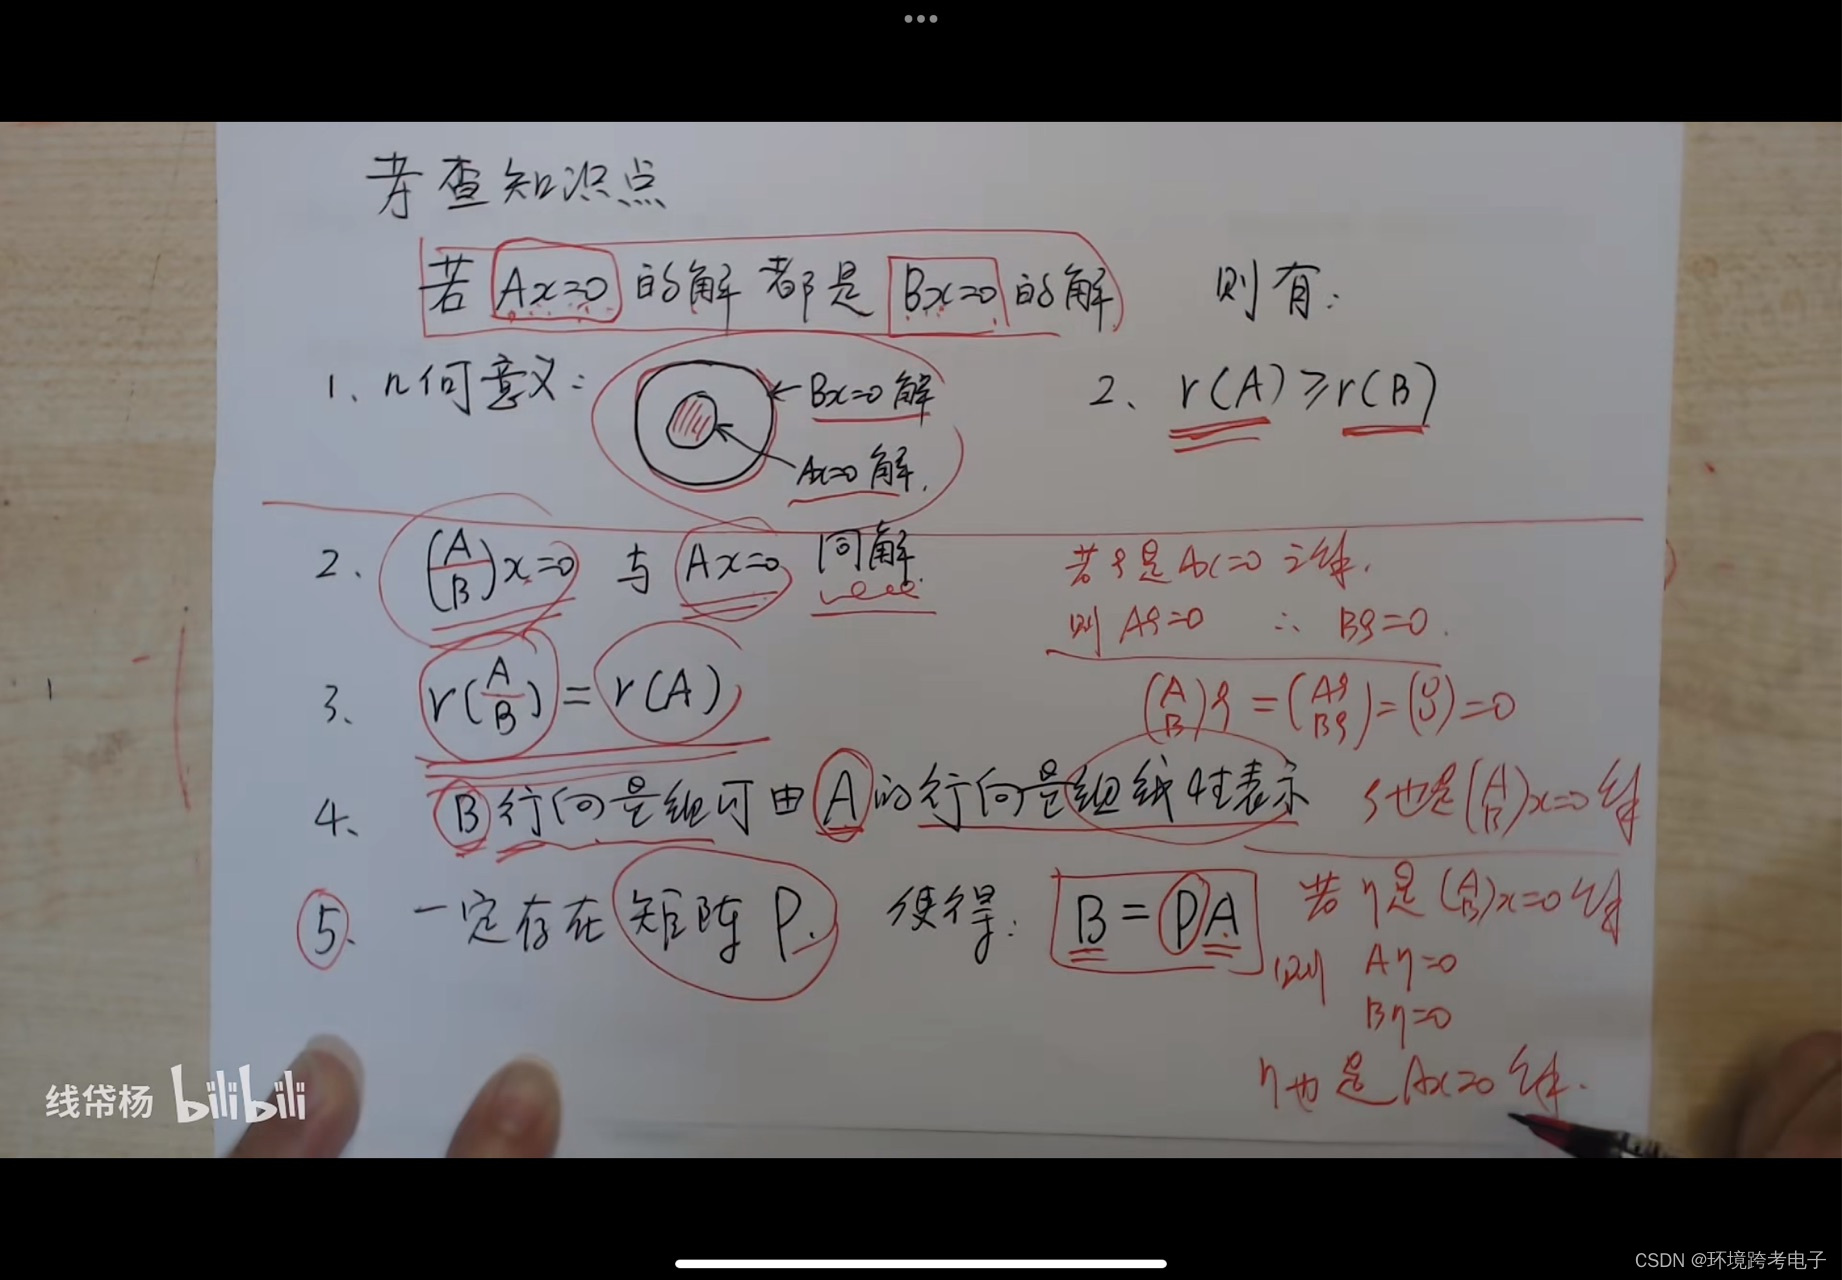 考查知识点
若 Ax=0 的解都是 Bx=0 的解 则有：
1、几何意义： ←Bx=0 解 2、r(A)≥r(B)
Ax=0 解.
2、(A/B)x=0 与 Ax=0 同解. 若ξ是Ax=0之解.
则 Aξ=0 ∴ Bξ=0.
3、r(A/B)=r(A) (A B)ξ=(Aξ Bξ)=(0 0)=0
4、B行向量组可由A的行向量组线性表示 ξ也是(A B)x=0 解
5、一定存在矩阵 P. 使得： B=PA 若η是(A B)x=0 解
则 Aη=0
Bη=0
η也是 Ax=0 解.
线帒杨 bilibili
CSDN @环境跨考电子